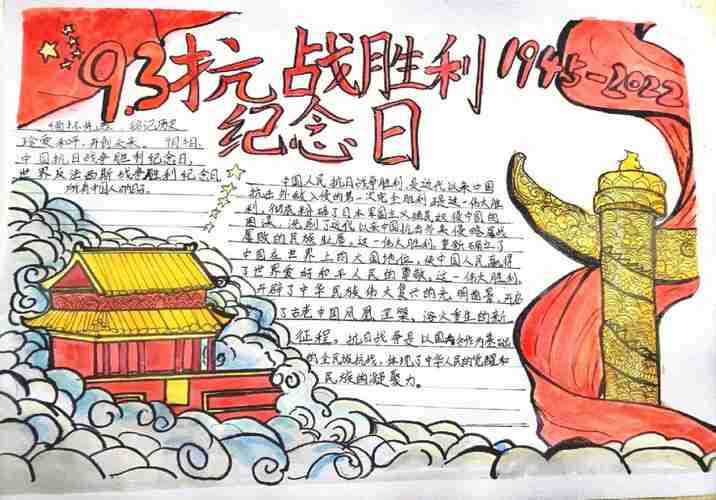 9.3抗战胜利
纪念日
1945-2022
缅怀先烈、铭记历史
珍爱和平、开创未来。9月3日,
中国抗日战争胜利纪念日,
世界反法西斯战争胜利纪念日
所有中国人
中国人民抗日战争胜利,是近代以来中国
抗击外敌入侵的第一次完全胜利,这一伟大胜
利,彻底粉碎了日本军国主义殖民奴役中国的
图谋,洗刷了近代以来中国抗击外来侵略屡战
屡败的民族耻辱。这一伟大胜利,重新确立了
中国在世界上的大国地位,使中国人民赢得
了世界爱好和平人民的尊敬。这一伟大胜利,
开辟了中华民族伟大复兴的光明前景,开启
了古老中国凤凰涅槃、浴火重生的新
征程。抗日战争是以国共合作为基础
的全民族抗战,体现了中华人民的觉醒和
民族的凝聚力。